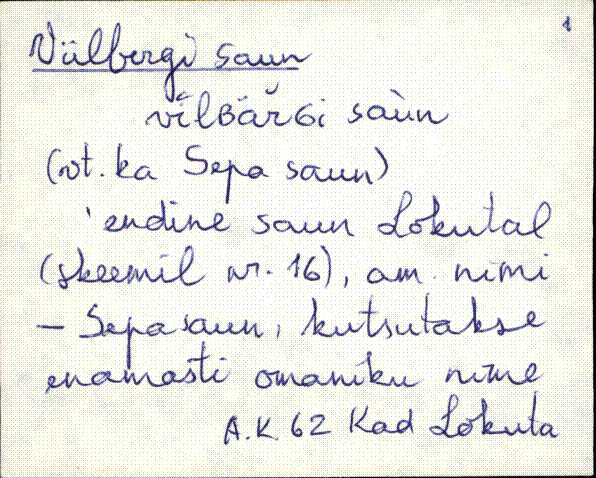 1
Vülbergi saun
vĭlʙäŕɢi saùn
(vt. ka Sepa saun)
'endine saun Lokutal
(skeemil nr. 16), am. nimi
– Sepasaun, kutsutakse
enamasti omaniku nime
A.K. 62 Kad Lokuta